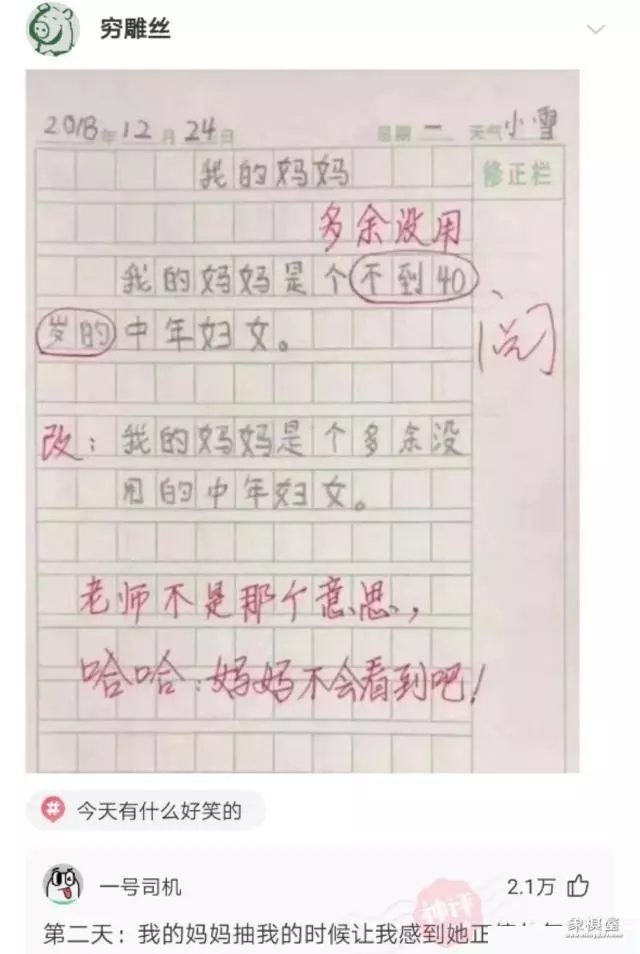 穷雕丝
2018年12月24日 星期一 天气小雪
我的妈妈
修正栏
多余没用
我的妈妈是个不到40
岁的中年妇女。
阅
改：我的妈妈是个多余没
用的中年妇女。
老师不是那个意思，
哈哈：妈妈不会看到吧！
今天有什么好笑的
一号司机
2.1万
神评
第二天：我的妈妈抽我的时候让我感到她正